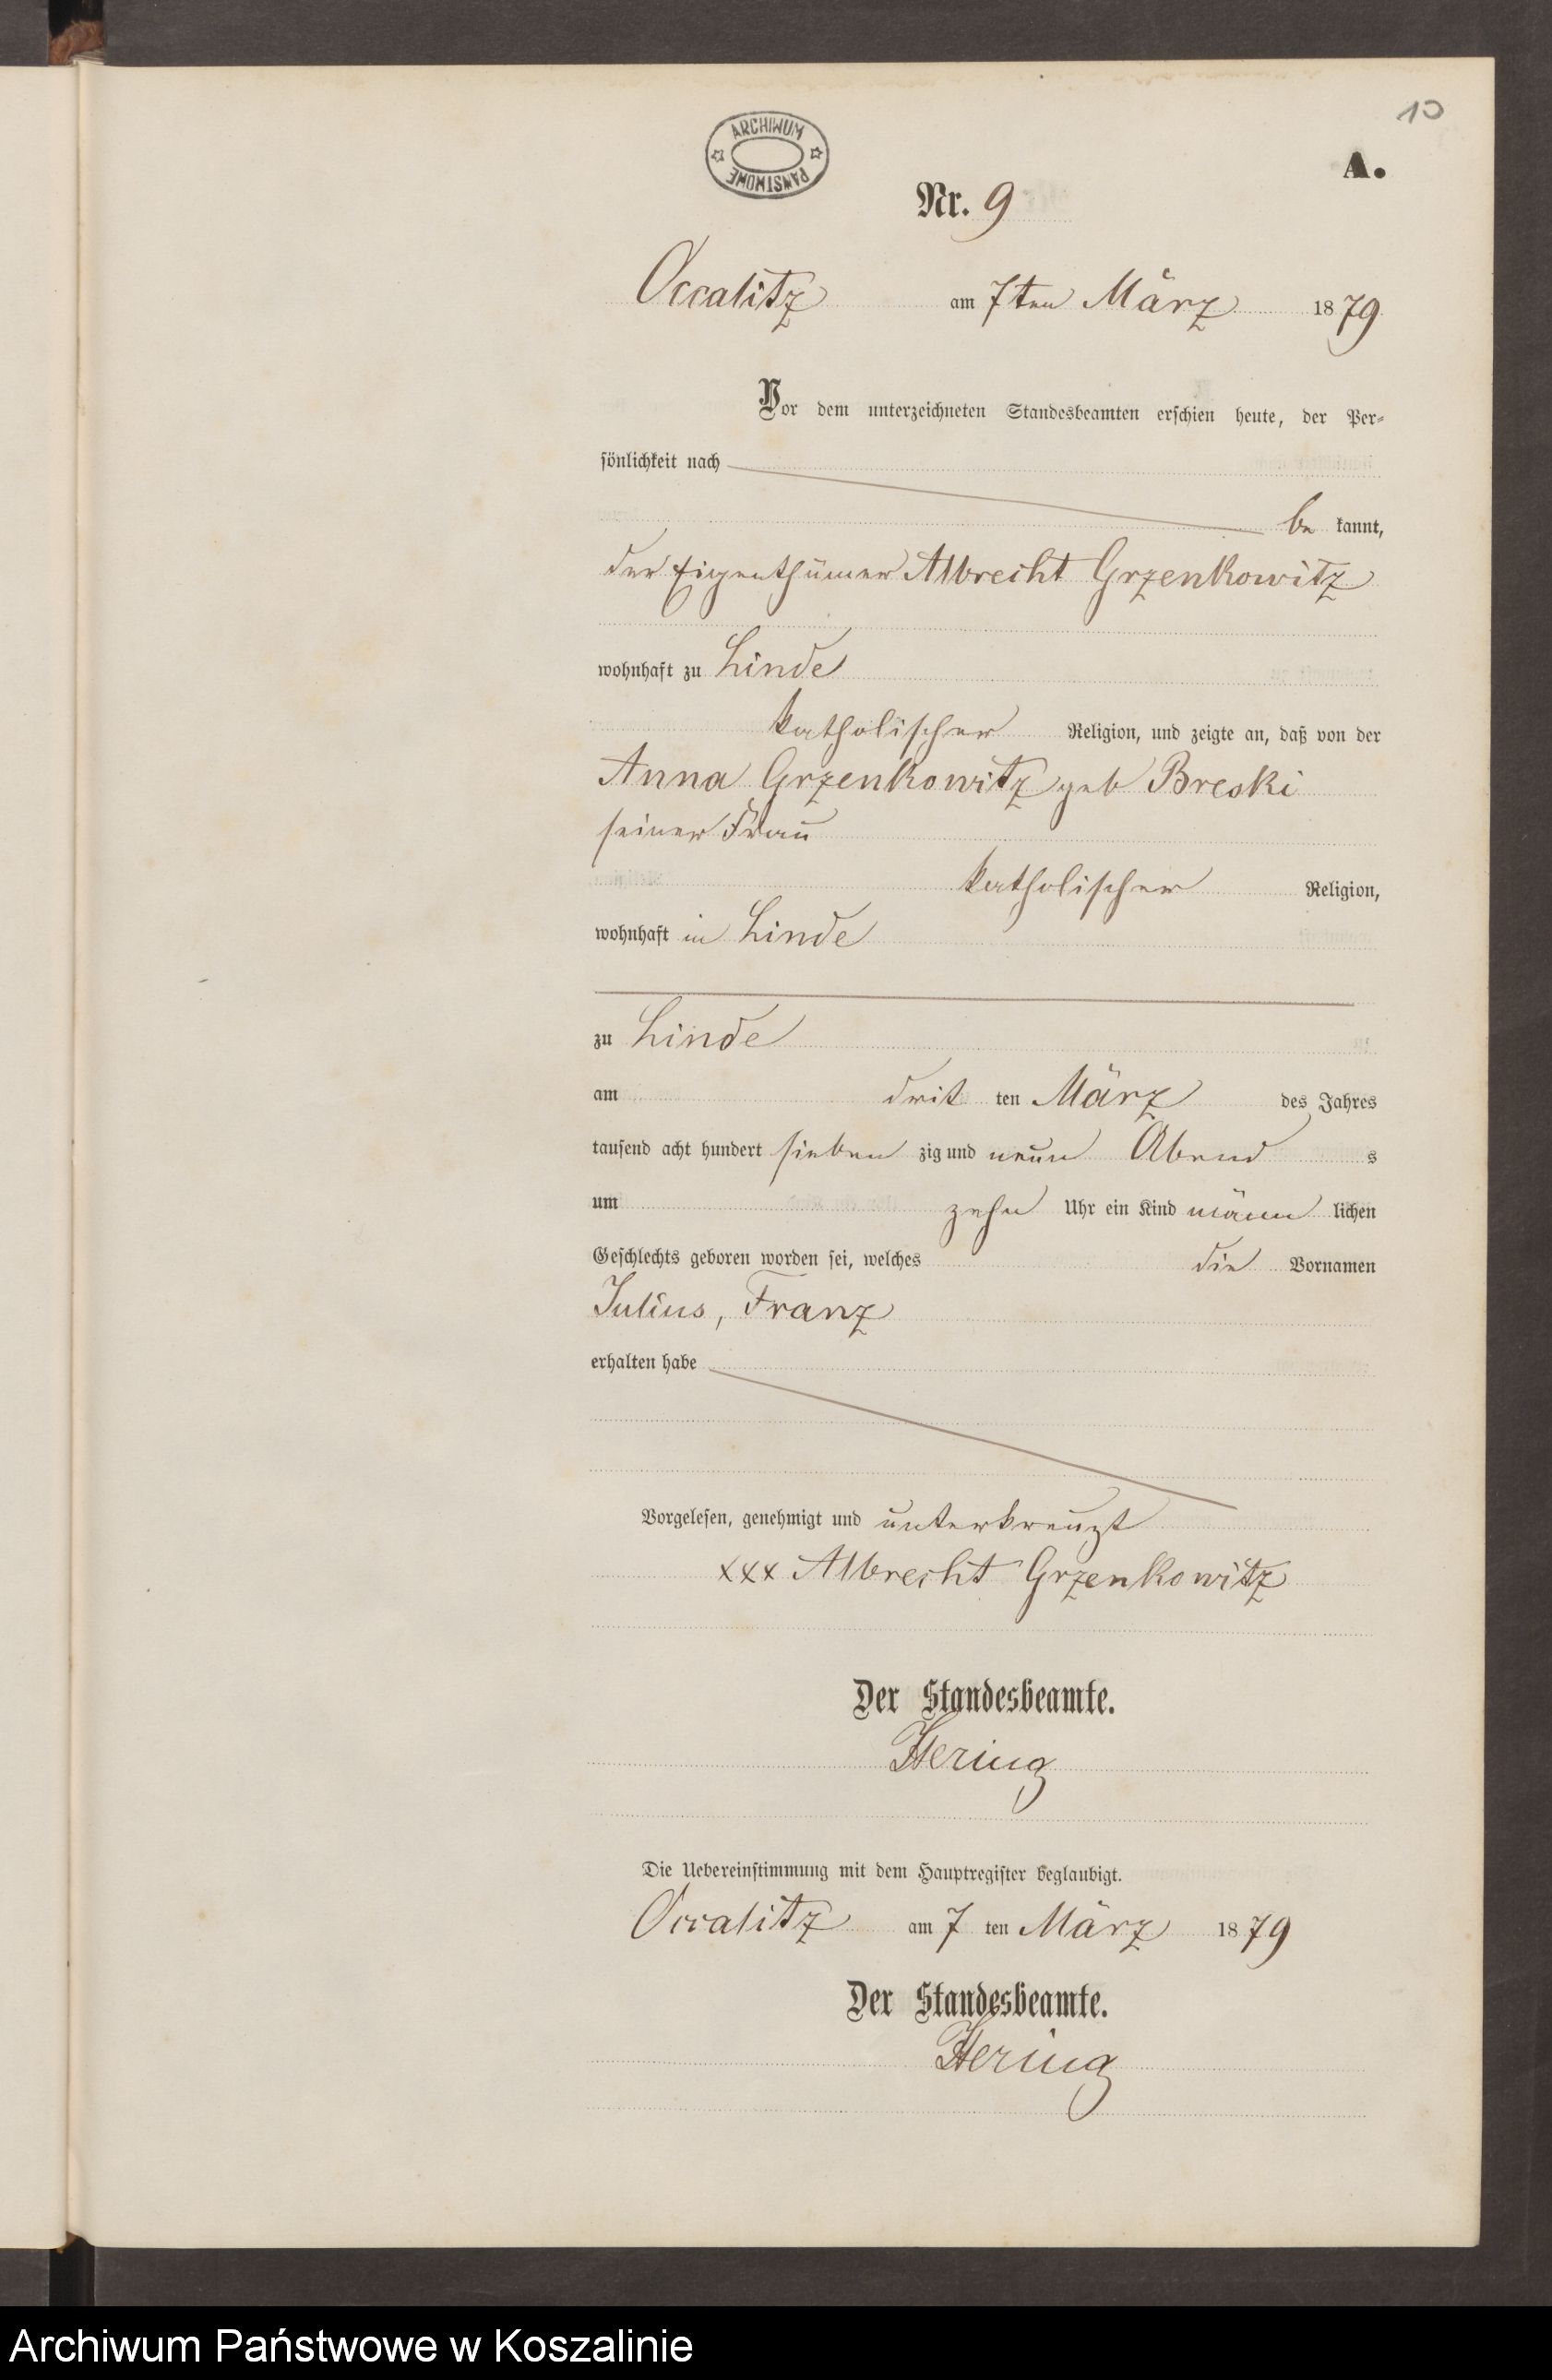 10
ARCHIWUM
PAŃSTWOWE
A.
Nr. 9
Occalitz am 7ten März 1879
Vor dem unterzeichneten Standesbeamten erschien heute, der Per=
sönlichkeit nach
be kannt,
der Eigenthümer Albrecht Grzenkowitz
wohnhaft zu Linde
katholischer Religion, und zeigte an, daß von der
Anna Grzenkowitz geb Breski
seiner Frau
katholischer Religion,
wohnhaft in Linde
zu Linde
am drit ten März des Jahres
tausend acht hundert sieben zig und neun Abend s
um zehn Uhr ein Kind männ lichen
Geschlechts geboren worden sei, welches die Vornamen
Julius, Franz
erhalten habe
Vorgelesen, genehmigt und unterkreuzt
xxx Albrecht Grzenkowitz
Der Standesbeamte.
Hering
Die Uebereinstimmung mit dem Hauptregister beglaubigt.
Occalitz am 7 ten März 1879
Der Standesbeamte.
Hering
Archiwum Państwowe w Koszalinie